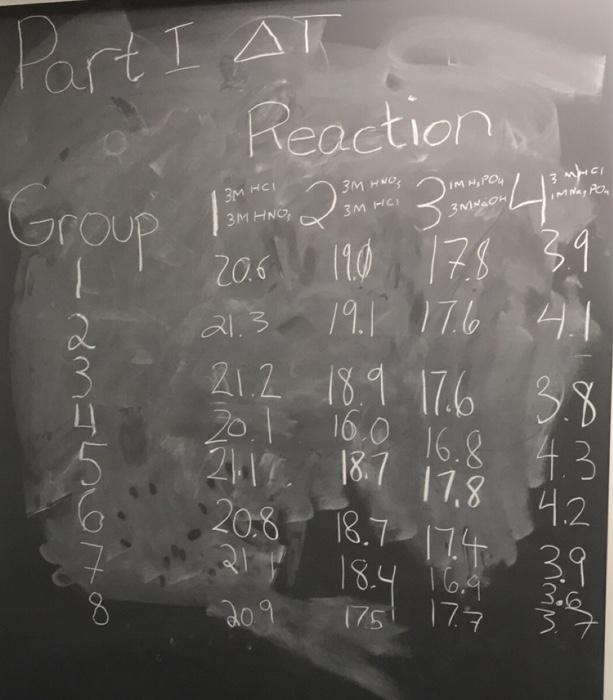 Part I ΔT
Reaction
Group 1 3M HCl 2 3M HNO₃ 3 1M H₃PO₄ 4 3 MHCl
3M HNO₃ 3M HCl 3M NaOH 1M Na₃PO₄
1 20.6 19.0 17.8 3.9
2 21.3 19.1 17.6 4.1
3 21.2 18.9 17.6 3.8
4 20.1 16.0 16.8 4.3
5 21.1 18.7 17.8 4.2
6 20.8 18.7 17.4 3.9
7 21.1 18.4 16.9 3.6
8 20.9 17.5 17.7 3.7